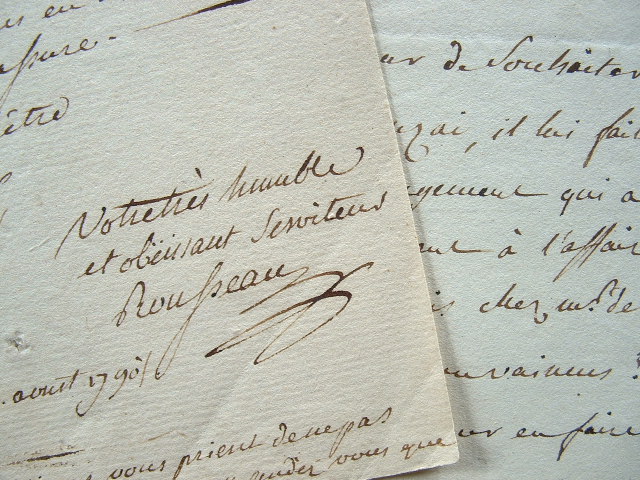 en
assure.
être
Votre très humble
et obëissant Serviteur
Rousseau
aoust 1790
vous prient de ne pas
vous que
de Souhaiter
il lui fait
gement qui a
à l'affair
chez mr. de
en faire